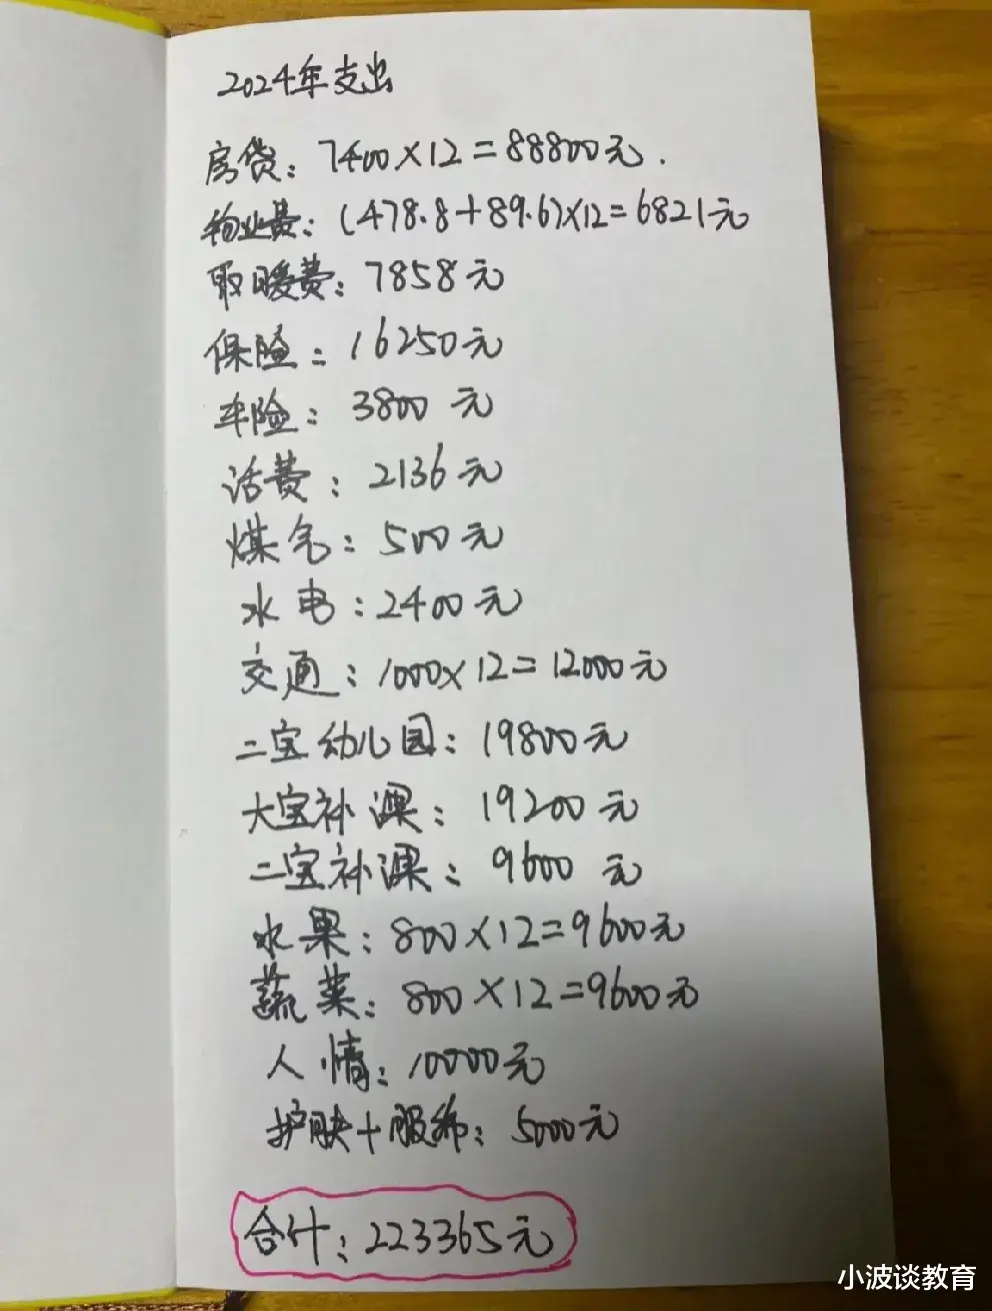 2024年支出
房贷：7400×12=88800元.
物业费：(478.8+89.6)×12=6821元
取暖费：7858元
保险：16250元
车险：3800元
话费：2136元
煤气：500元
水电：2400元
交通：1000×12=12000元
二宝幼儿园：19800元
大宝补课：19200元
二宝补课：9600元
水果：800×12=9600元
蔬菜：800×12=9600元
人情：10000元
护肤+服饰：5000元
合计：223365元
小波谈教育